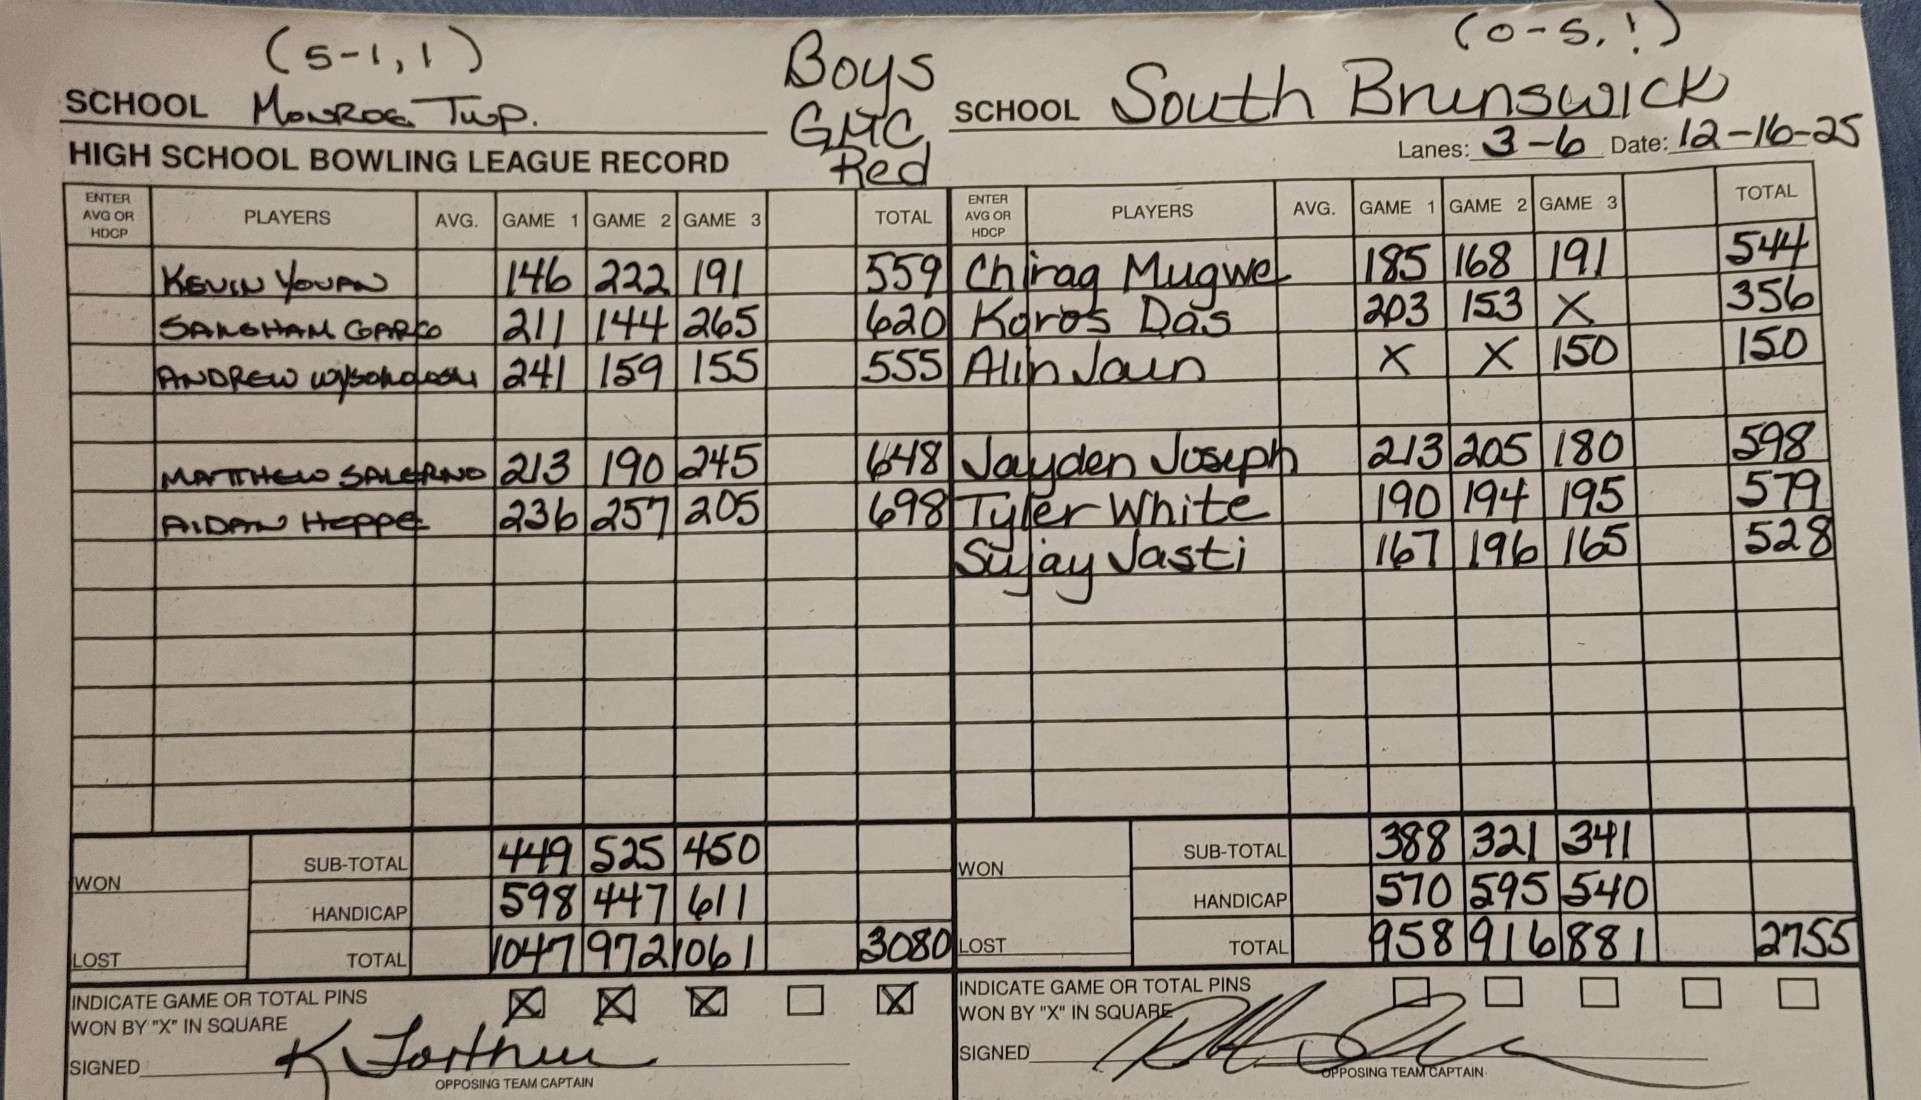 (5-1,1) Boys (0-5,!)
SCHOOL Monroe Twp. GMC SCHOOL South Brunswick
HIGH SCHOOL BOWLING LEAGUE RECORD Red Lanes: 3-6 Date: 12-16-25
ENTER AVG OR HDCP PLAYERS AVG. GAME 1 GAME 2 GAME 3 TOTAL ENTER AVG OR HDCP PLAYERS AVG. GAME 1 GAME 2 GAME 3 TOTAL
KEVIN YOUAN 146 222 191 559 Chirag Mugwe 185 168 191 544
SANGHAM 211 144 265 620 Karos Das 203 153 X 356
ANDREW 241 159 155 555 Alin Jain X X 150 150
MATTHEW SALERNO 213 190 245 648 Jayden Joseph 213 205 180 598
AIDAN HEPPE 236 257 205 698 Tyler White 190 194 195 579
Sujay Jasti 167 196 165 528
WON SUB-TOTAL 449 525 450 WON SUB-TOTAL 388 321 341
HANDICAP 598 447 611 HANDICAP 570 595 540
LOST TOTAL 1047 972 1061 3080 LOST TOTAL 958 916 881 2755
INDICATE GAME OR TOTAL PINS X X X X INDICATE GAME OR TOTAL PINS
WON BY "X" IN SQUARE WON BY "X" IN SQUARE
SIGNED K SIGNED
OPPOSING TEAM CAPTAIN OPPOSING TEAM CAPTAIN